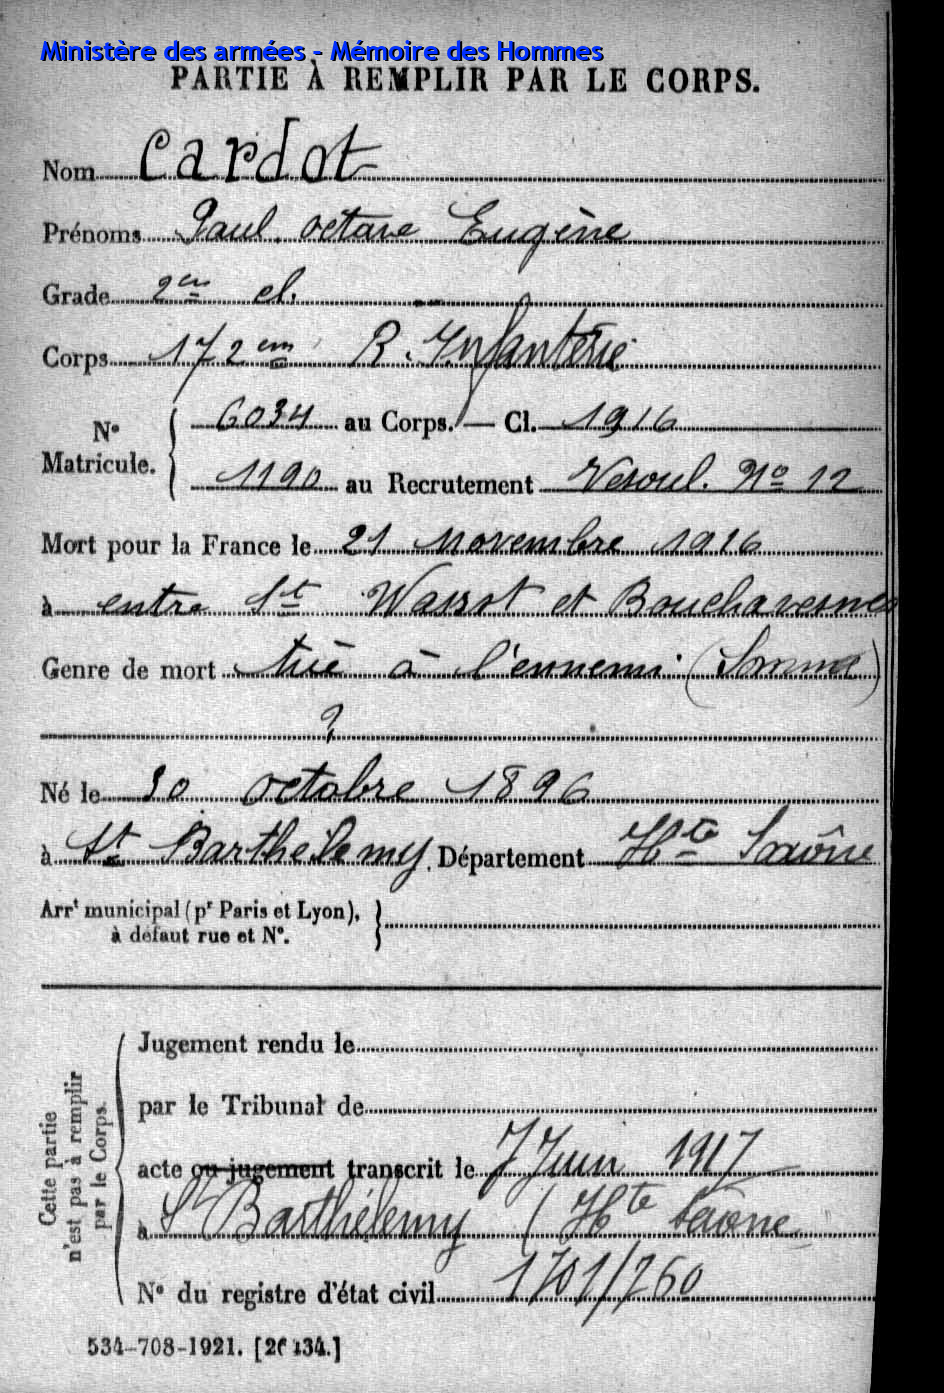 Ministère des armées - Mémoire des Hommes
PARTIE À REMPLIR PAR LE CORPS.
Nom Cardot
Prénoms Paul octave Eugène
Grade 2em cl.
Corps 172em R. Infanterie
N° Matricule. 6034 au Corps. — Cl. 1916
1190 au Recrutement Vesoul. N° 12
Mort pour la France le 21 novembre 1916
à entre St Waast et Bouchavesnes
Genre de mort tué à l'ennemi (Somme)
?
Né le 30 octobre 1896
à St Barthélemy. Département Hte Saône
Arrt municipal (pr Paris et Lyon),
à défaut rue et N°.
Cette partie n'est pas à remplir par le Corps.
Jugement rendu le
par le Tribunal de
acte ou jugement transcrit le 7 Juin 1917
à St Barthélemy (Hte Saône
N° du registre d'état civil 1701/760
534-708-1921. [26434.]